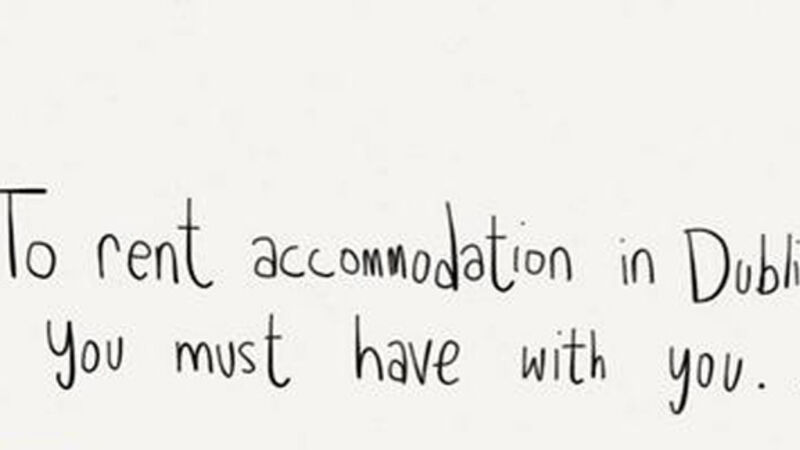 To rent accommodation in Dubli
you must have with you.